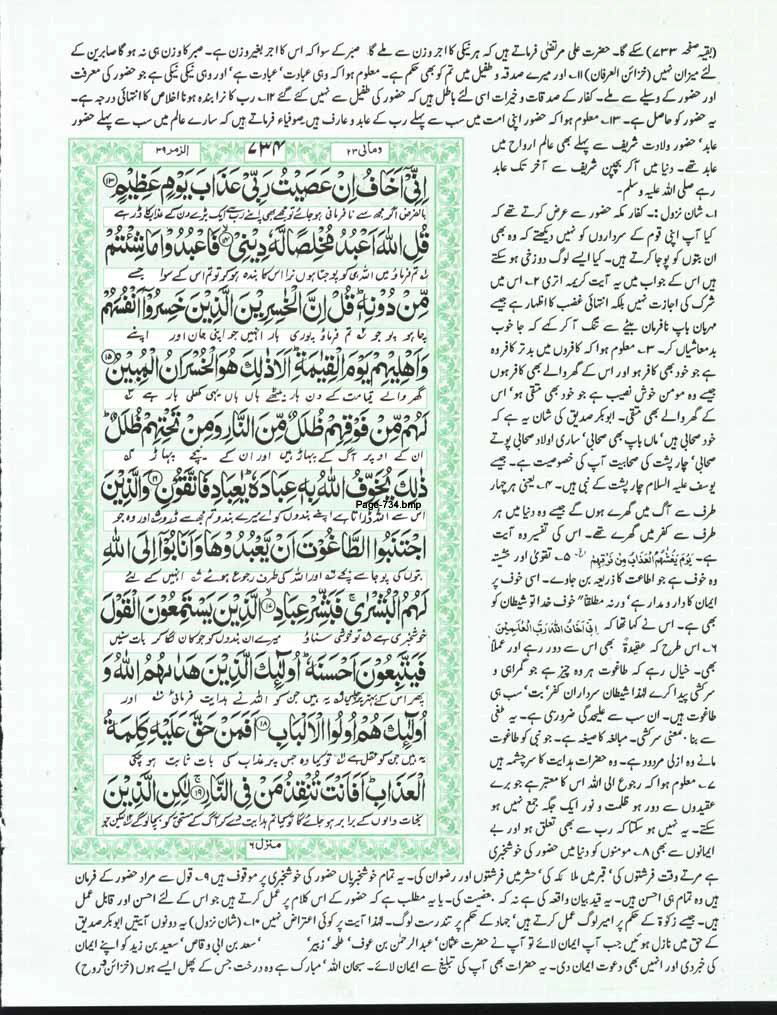 (بقیہ صفحہ ۷۳۳) سکے گا۔ حضرت علی مرتضیٰ فرماتے ہیں کہ ہر نیکی کا اجر وزن سے ملے گا صبر کے سوا کہ اس کا اجر بغیر وزن ہے۔ صبر کا وزن ہی نہ ہو گا صابرین کے
لئے میزان نہیں (خزائن العرفان) ۱۱۔ اور میرے صدقہ و طفیل میں تم کو بھی حکم ہے۔ معلوم ہوا کہ وہی عبادت، عبادت ہے، اور وہی نیکی نیکی ہے جو حضور کی معرفت
اور حضور کے وسیلے سے ملے۔ کفار کے صدقات و خیرات اسی لئے باطل ہیں کہ حضور کی طفیل سے نہیں کئے گئے ۱۲۔ رب کا نرا بندہ ہونا اخلاص کا انتہائی درجہ ہے۔
یہ حضور کو حاصل ہے۔ ۱۳۔ معلوم ہوا کہ حضور اپنی امت میں سب سے پہلے رب کے عابد و عارف ہیں صوفیاء فرماتے ہیں کہ سارے عالم میں سب سے پہلے حضور
عابد، حضور ولادت شریف سے پہلے بھی عالم ارواح میں
عابد تھے۔ دنیا میں آ کر بچپن شریف سے آخر تک عابد
رہے صلی اللہ علیہ وسلم۔
۱۔ شان نزول :۔ کفار مکہ حضور سے عرض کرتے تھے کہ
کیا آپ اپنی قوم کے سرداروں کو نہیں دیکھتے کہ وہ بھی
ان بتوں کو پوجا کرتے ہیں۔ کیا ایسے لوگ دوزخی ہو سکتے
ہیں اس کے جواب میں یہ آیت کریمہ اتری ۲۔ اس میں
شرک کی اجازت نہیں بلکہ انتہائی غضب کا اظہار ہے جیسے
مہربان باپ نافرمان بیٹے سے تنگ آ کر کہے کہ جا خوب
بدمعاشیاں کر۔ ۳۔ معلوم ہوا کہ کافروں میں بدتر کافر وہ
ہے جو خود بھی کافر ہو اور اس کے گھر والے بھی کافر ہوں
جیسے وہ مومن خوش نصیب ہے جو خود بھی متقی ہو، اس
کے گھر والے بھی متقی۔ ابو بکر صدیق کی شان یہ ہے کہ
خود صحابی ہیں، ماں باپ بھی صحابی، ساری اولاد صحابی پوتے
صحابی، چار پشت کی صحابیت آپ کی خصوصیت ہے۔ جیسے
یوسف علیہ السلام چار پشت کے نبی ہیں۔ ۴۔ یعنی ہر چہار
طرف سے آگ میں گھرے ہوں گے جیسے وہ دنیا میں ہر
طرف سے کفر میں گھرے تھے۔ اس کی تفسیر وہ آیت
ہے۔ یَوْمَ یَغْشٰهُمُ الْعَذَابُ مِنْ فَوْقِهِمْ ۵۔ تقویٰ اور خشیتہ
وہ خوف ہے جو اطاعت کا ذریعہ بن جاوے۔ اسی خوف پر
ایمان کا دار و مدار ہے، ورنہ مطلقاً خوف خدا تو شیطان کو
بھی ہے۔ اس نے کہا تھا کہ اِنِّیْ اَخَافُ اللّٰهَ رَبَّ الْعٰلَمِیْنَ
۶۔ اس طرح کہ عقیدۃً بھی اس سے دور رہے اور عملاً
بھی۔ خیال رہے کہ طاغوت ہر وہ چیز ہے جو گمراہی و
سرکشی پیدا کرے لہٰذا شیطان سرداران کفر، بت، سب ہی
طاغوت ہیں۔ ان سب سے علیحدگی ضروری ہے۔ یہ طغی
سے بنا، معنی سرکشی۔ مبالغہ کا صیغہ ہے۔ جو نبی کو طاغوت
مانے وہ ازلی مردود ہے۔ وہ حضرات ہدایت کا سرچشمہ ہیں
۷۔ معلوم ہوا کہ رجوع الی اللہ اس کا معتبر ہے جو برے
عقیدوں سے دور ہو ظلمت و نور ایک جگہ جمع نہیں ہو
سکتے۔ یہ نہیں ہو سکتا کہ رب سے بھی تعلق ہو اور بے
ایمانوں سے بھی ۸۔ مومنوں کو دنیا میں حضور کی خوشخبری
الزمر ۳۹ ۷۳۴ ومالی ۲۳
اِنِّیْۤ اَخَافُ اِنْ عَصَیْتُ رَبِّیْ عَذَابَ یَوْمٍ عَظِیْمٍ ۱۳
بالفرض اگر مجھ سے نافرمانی ہو جائے تو مجھے بھی اپنے رب سے ایک بڑے دن کے عذاب کا ڈر ہے
قُلِ اللّٰهَ اَعْبُدُ مُخْلِصًا لَّهٗ دِیْنِیْ ۱۴ فَاعْبُدُوْا مَا شِئْتُمْ
تم فرماؤ میں اللہ ہی کو پوجتا ہوں نرا اس کا بندہ ہو کر تو تم اس کے سوا جسے
مِّنْ دُوْنِهٖ ؕ قُلْ اِنَّ الْخٰسِرِیْنَ الَّذِیْنَ خَسِرُوْۤا اَنْفُسَهُمْ
چاہو پوجو تم فرماؤ پوری ہار انہیں جو اپنی جان اور اپنے
وَاَهْلِیْهِمْ یَوْمَ الْقِیٰمَةِ ؕ اَلَا ذٰلِكَ هُوَ الْخُسْرَانُ الْمُبِیْنُ ۱۵
گھر والے قیامت کے دن ہار بیٹھے ہاں ہاں یہی کھلی ہار ہے
لَهُمْ مِّنْ فَوْقِهِمْ ظُلَلٌ مِّنَ النَّارِ وَمِنْ تَحْتِهِمْ ظُلَلٌ ؕ
ان کے اوپر آگ کے پہاڑ ہیں اور ان کے نیچے پہاڑ
ذٰلِكَ یُخَوِّفُ اللّٰهُ بِهٖ عِبَادَهٗ ؕ یٰعِبَادِ فَاتَّقُوْنِ ۱۶ وَالَّذِیْنَ
Page-734.bmp
اس سے اللہ ڈراتا ہے اپنے بندوں کو اے میرے بندو تم مجھ سے ڈرو اور وہ جو
اجْتَنَبُوا الطَّاغُوْتَ اَنْ یَّعْبُدُوْهَا وَاَنَابُوْۤا اِلَی اللّٰهِ
بتوں کی پوجا سے بچے اور اللہ کی طرف رجوع ہوئے انہیں کے لئے
لَهُمُ الْبُشْرٰی ۚ فَبَشِّرْ عِبَادِ ۱۷ الَّذِیْنَ یَسْتَمِعُوْنَ الْقَوْلَ
خوشخبری ہے تو خوشی سناؤ میرے ان بندوں کو جو کان لگا کر بات سنیں
فَیَتَّبِعُوْنَ اَحْسَنَهٗ ؕ اُولٰٓئِكَ الَّذِیْنَ هَدٰىهُمُ اللّٰهُ وَ
پھر اس کے بہتر پر چلیں یہ ہیں جن کو اللہ نے ہدایت فرمائی اور
اُولٰٓئِكَ هُمْ اُولُوا الْاَلْبَابِ ۱۸ اَفَمَنْ حَقَّ عَلَیْهِ كَلِمَةُ
یہ ہیں جن کو عقل ہے تو کیا وہ جس پر عذاب کی بات ثابت ہو چکی
الْعَذَابِ ؕ اَفَاَنْتَ تُنْقِذُ مَنْ فِی النَّارِ ۱۹ لٰكِنِ الَّذِیْنَ
نجات والوں کے برابر ہو جائے گا تو کیا تم ہدایت دے کر آگ کے مستحق کو بچا لو گے لیکن جو
منزل ۶
ہے مرتے وقت فرشتوں کی، قبر میں ملائکہ کی، حشر میں فرشتوں اور رضوان کی۔ یہ تمام خوشخبریاں حضور کی خوشخبری پر موقوف ہیں ۹۔ قول سے مراد حضور کے فرمان
ہیں وہ تمام ہی احسن ہیں۔ یہ قید بیان واقعہ کی ہے نہ کہ بعضیت کی۔ یا یہ مطلب ہے کہ حضور کے اس کلام پر عمل کرتے ہیں جو اس کے لئے احسن اور قابل عمل
ہیں۔ جیسے زکوٰۃ کے حکم پر امیر لوگ عمل کرتے ہیں، جہاد کے حکم پر تندرست لوگ۔ لہٰذا آیت پر کوئی اعتراض نہیں ۱۰۔ (شان نزول) یہ دونوں آیتیں ابو بکر صدیق
کے حق میں نازل ہوئیں جب آپ ایمان لائے تو آپ نے حضرت عثمان، عبدالرحمٰن بن عوف، طلحہ، زبیر، سعد بن ابی وقاص، سعید بن زید کو اپنے ایمان
کی خبر دی اور انہیں بھی دعوت ایمان دی۔ یہ حضرات بھی آپ کی تبلیغ سے ایمان لائے۔ سبحان اللہ، مبارک ہے وہ درخت جس کے پھل ایسے ہوں (خزائن و روح)